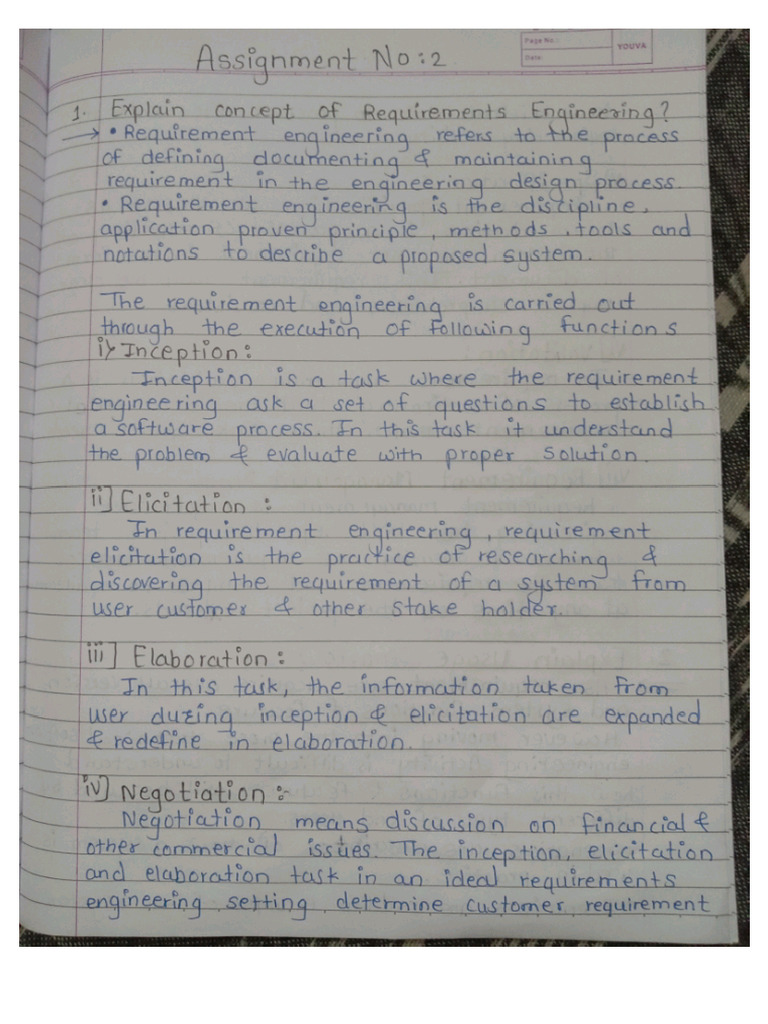 Page No.:
Date:
YOUVA
Assignment No: 2
1. Explain concept of Requirements Engineering?
→ • Requirement engineering refers to the process
of defining documenting & maintaining
requirement in the engineering design process.
• Requirement engineering is the discipline,
application proven principle, methods, tools and
notations to describe a proposed system.
The requirement engineering is carried out
through the execution of following functions
i) Inception:
Inception is a task where the requirement
engineering ask a set of questions to establish
a software process. In this task it understand
the problem & evaluate with proper solution.
ii] Elicitation :
In requirement engineering, requirement
elicitation is the practice of researching &
discovering the requirement of a system from
user customer & other stake holder.
iii] Elaboration :
In this task, the information taken from
user during inception & elicitation are expanded
& redefine in elaboration.
iv] Negotiation :-
Negotiation means discussion on financial &
other commercial issues. The inception, elicitation
and elaboration task in an ideal requirements
engineering setting, determine customer requirement